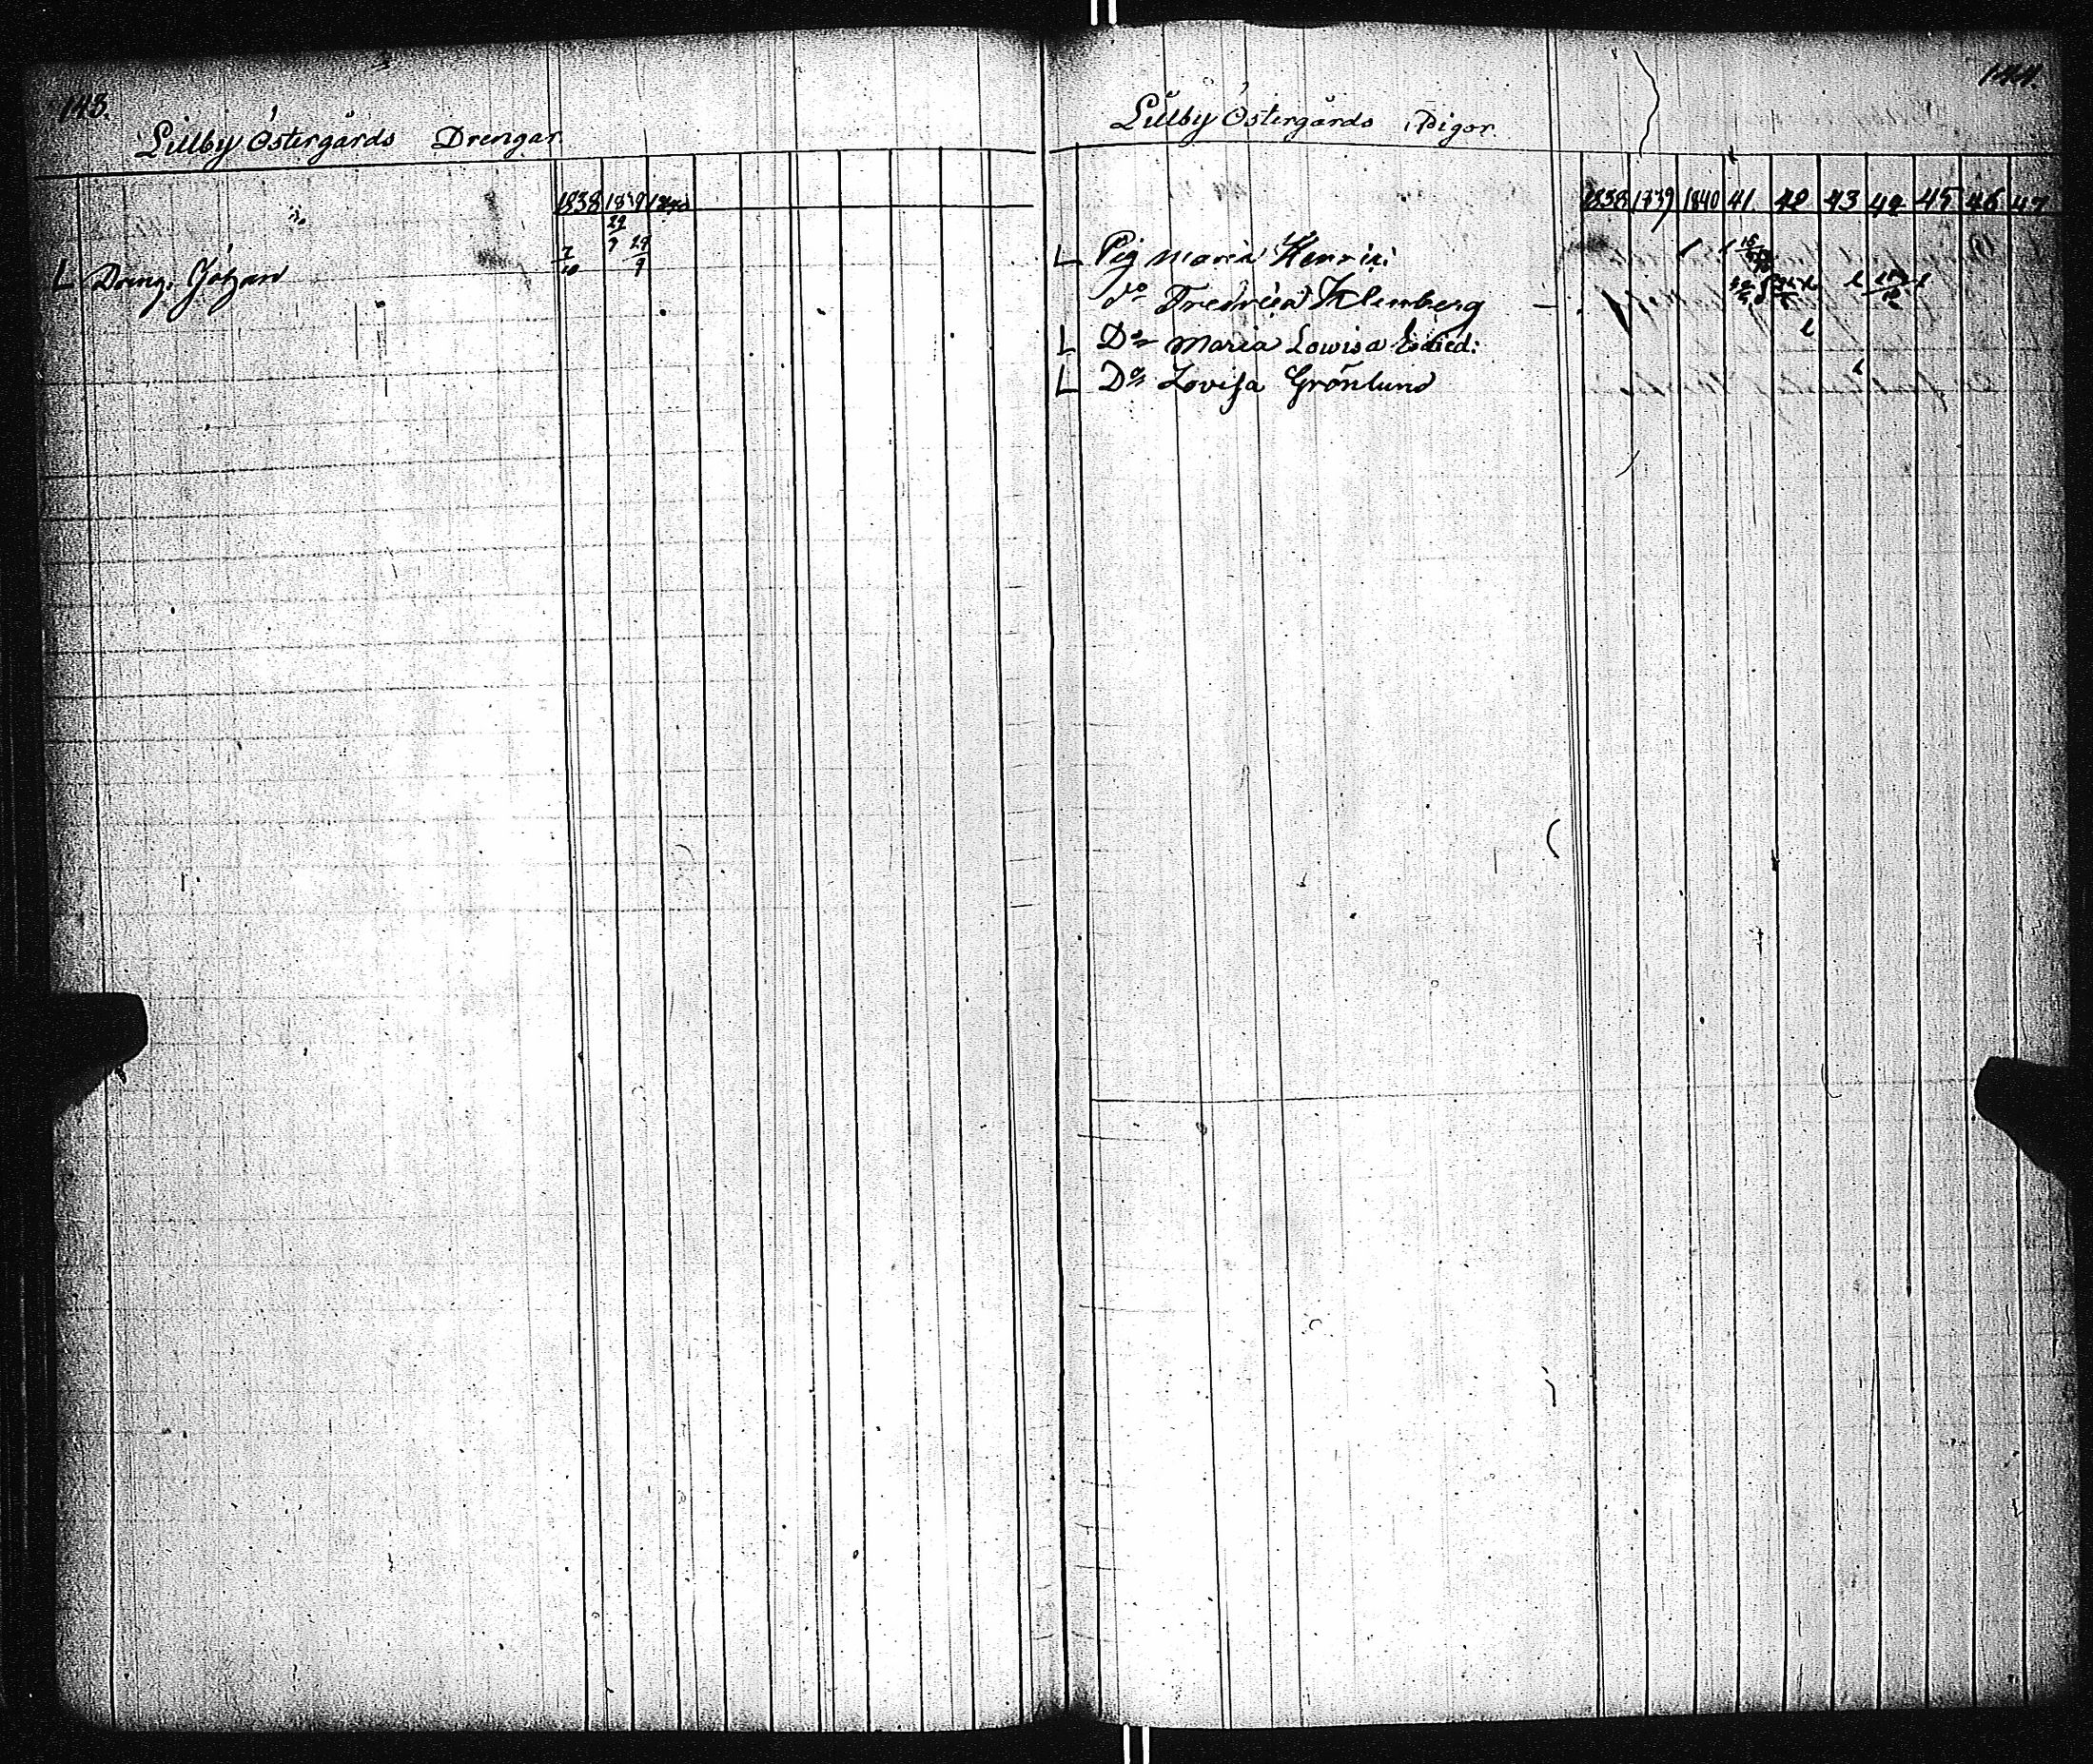 143.
Lillby Östergårds Drengar.
1838 1839 1840
29/9
Dreng. Johan 7/10 29/9
144.
Lillby Östergårds Pigor.
1838 1839 1840 41. 42 43 44 45 46 47
L Pig Maria Henric:
do Fredrica Klemberg
L Do Maria Lowisa
L Do Lovisa Grönlund